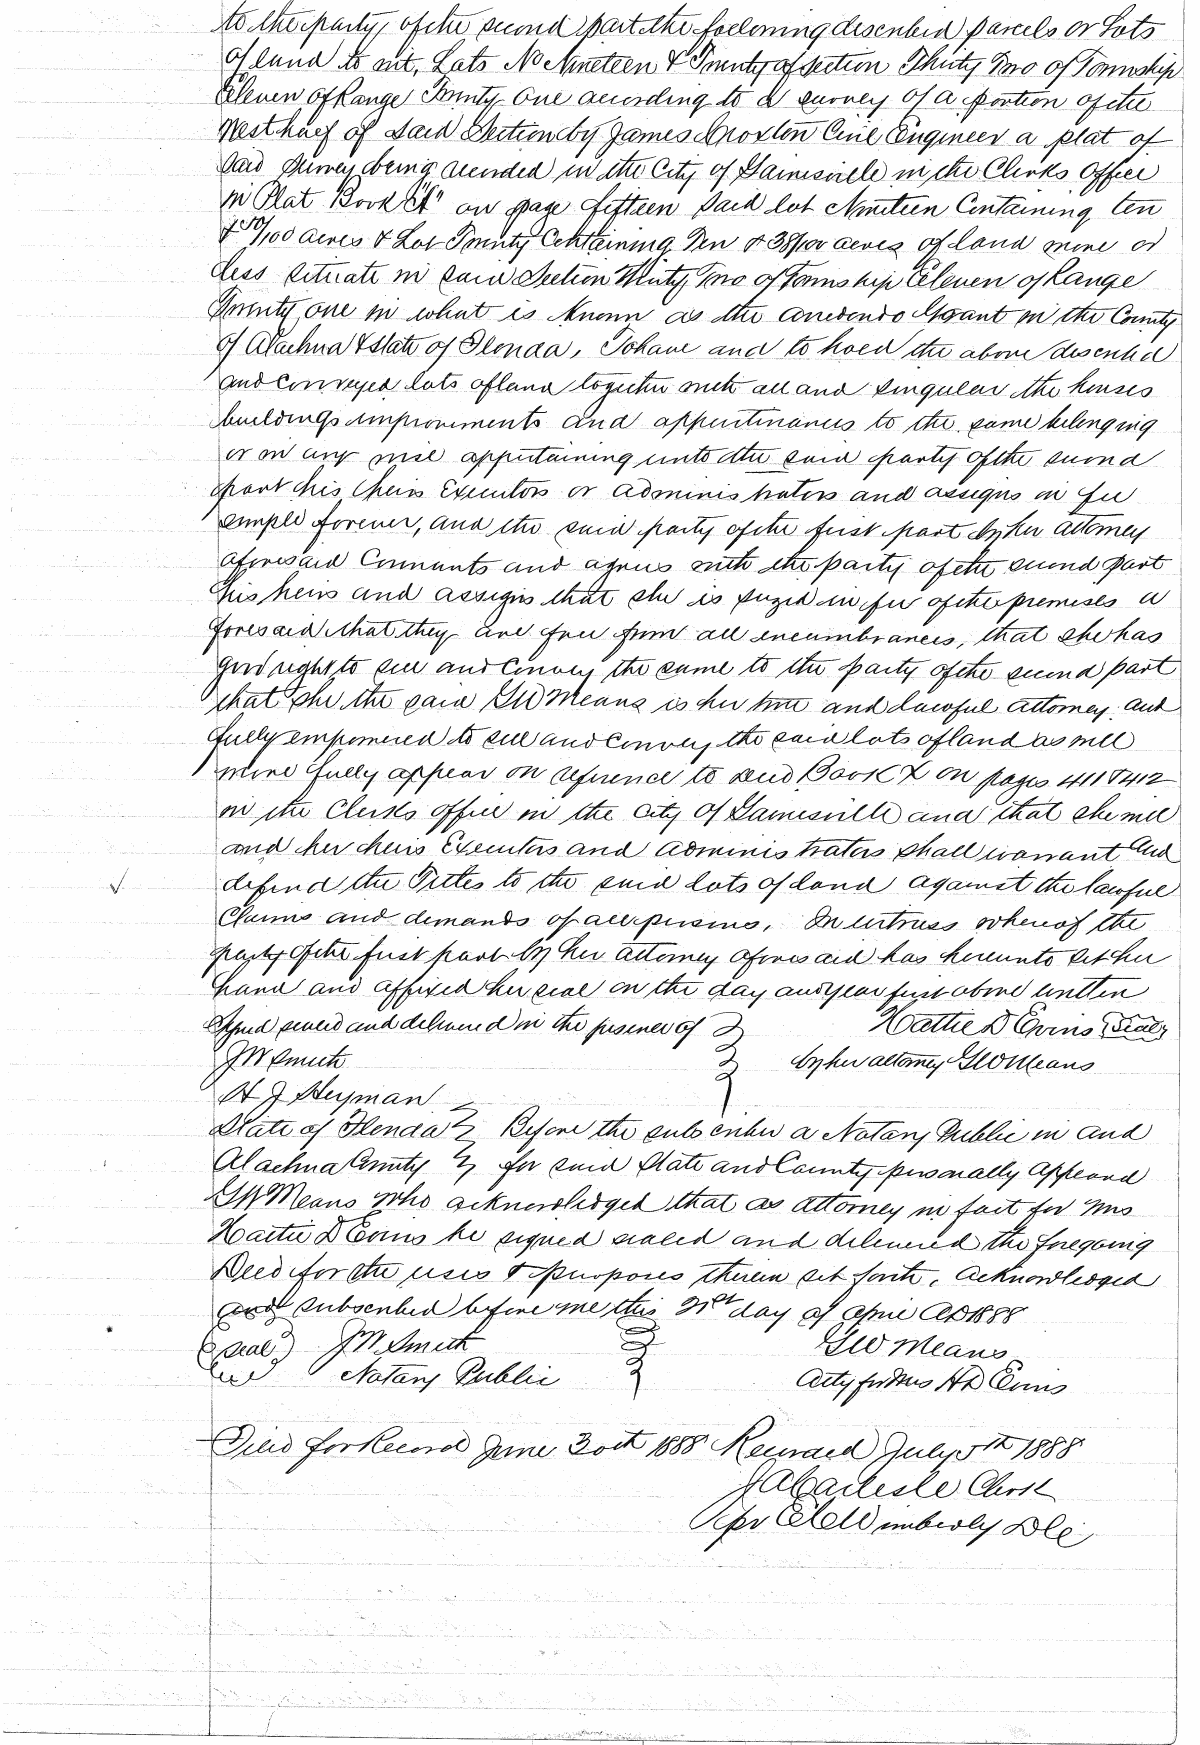 to the party of the second part the following described parcels or Lots
of land to wit, Lots No Nineteen & Twenty of section Thirty Two of Township
Eleven of Range Twenty One according to a survey of a portion of the
West half of said Section by James Croxton Civil Engineer a plat of
said survey being recorded in the City of Gainesville in the Clerks Office
in Plat Book "A" on page fifteen said lot Nineteen Containing ten
& /100 acres & Lot Twenty Containing Ten & 38/100 acres of land more or
less situate in said Section Thirty Two of Township Eleven of Range
Twenty one in what is known as the arredondo Grant in the County
of Alachua & State of Florida, To have and to hold the above described
and conveyed lots of land together with all and singular the houses
buildings improvements and appurtinances to the same belonging
or in any wise appertaining unto the said party of the second
part his heirs Executors or administrators and assigns in fee
simple forever, and the said party of the first part by her attorney
aforesaid Covenants and agrees with the party of the second part
his heirs and assigns that she is siezed in fee of the premises a
foresaid that they are free from all encumbrances, that she has
good right to sell and Convey the same to the party of the second part
that she the said GW Means is her true and lawful attorney and
fully empowered to sell and convey the said lots of land as will
more fully appear on reference to deed Book Z on pages 411 & 412
in the Clerks office in the city of Gainesville and that she will
and her heirs Executors and administrators shall warrant and
defend the Titles to the said lots of land against the lawful
Claims and demands of all persons, In witness whereof the
party of the first part by her attorney aforesaid has hereunto set her
hand and affixed her seal on the day and year first above written
Signed sealed and delivered in the presence of Hattie D Evins (Seal)
JW Smith by her attorney GW Means
H J Heyman
State of Florida Before the subscriber a Notary Public in and
Alachua County for said State and County personally appeared
GW Means who acknowledged that as attorney in fact for Mrs
Hattie D Evins he signed sealed and delivered the foregoing
Deed for the uses & purposes therein set forth, acknowledged
and subscribed before me this 21st day of April AD 1888
(seal) JW Smith GW Means
Notary Public Atty for Mrs HD Evins
Filed for Record June 30th 1888 Recorded July 5th 1888
J A Carlisle Clerk
Per Wimberly DC